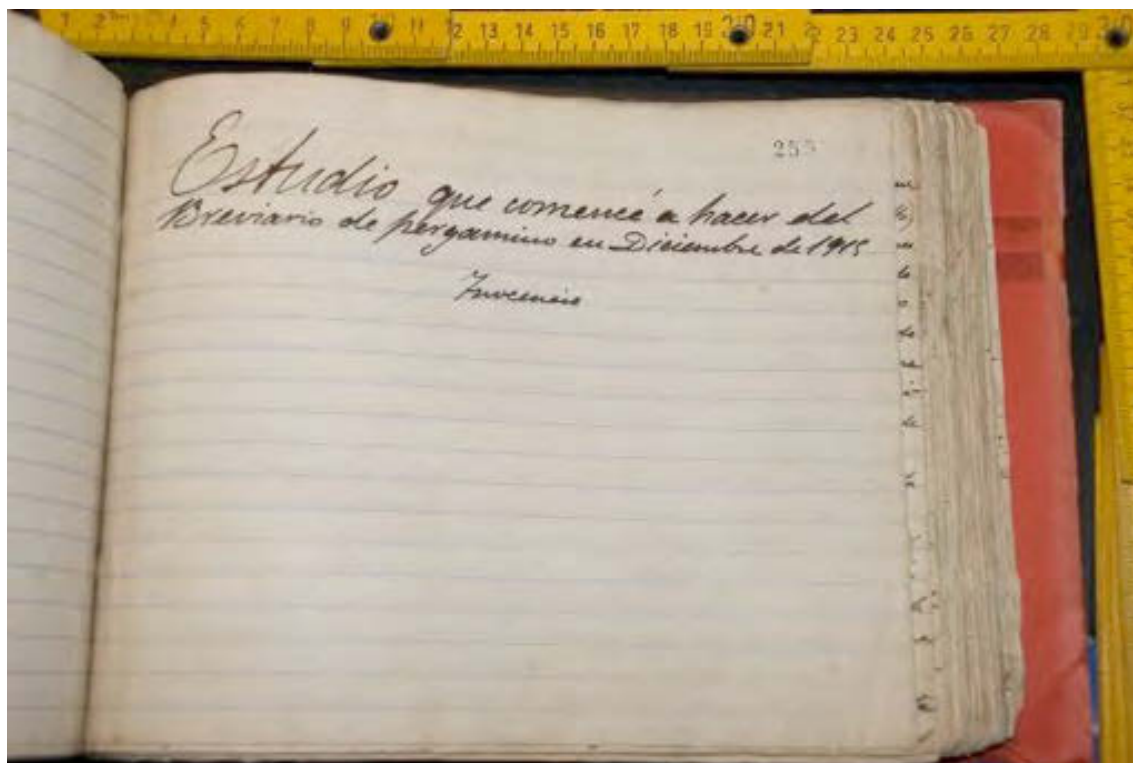 1 2 3 4 5 6 7 8 9 10 11 12 13 14 15 16 17 18 19 20 21 22 23 24 25 26 27 28 29 30
Estudio que comencé a hacer del
Breviario de pergamino en Diciembre de 1915
Inocencio